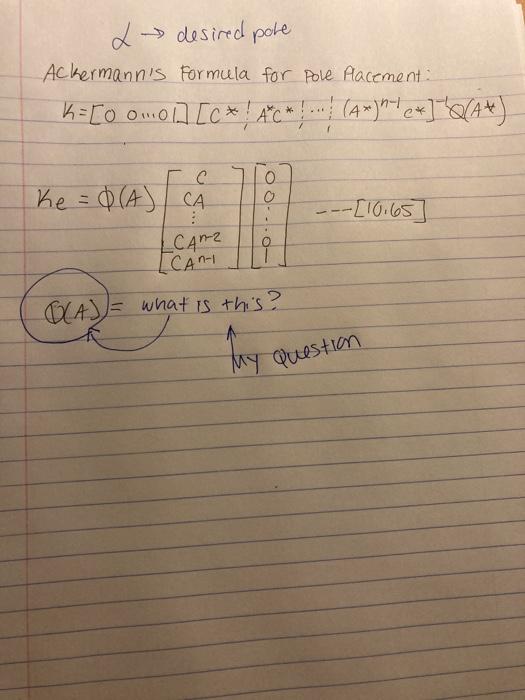 α → desired pole
Ackermann's Formula for Pole Placement:
K = [0 0 ... 0 1] [C* ¦ A*C* ¦ ... ¦ (A*)ⁿ⁻¹ C*]⁻¹ Φ(A*)
Ke = Φ(A) [C CA ⋮ CAⁿ⁻² CAⁿ⁻¹] [0 0 ⋮ 0 1] ---[10.65]
Φ(A) = what is this?
My question